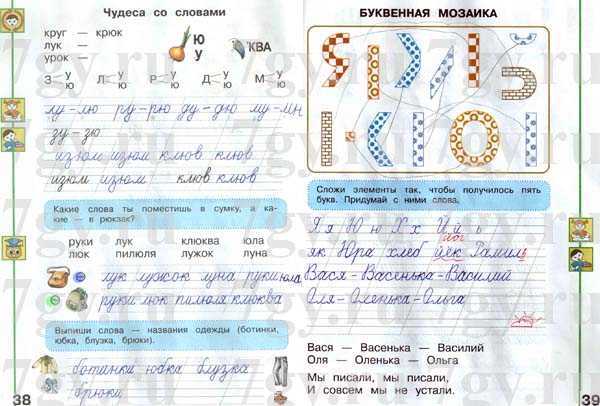 Чудеса со словами
круг — крюк
лук —
урок —
Ю
У
КВА
З у ю Л у ю Р у ю Д у ю М у ю
лу-лю ру-рю ду-дю му-мю
зу-зю
изюм изюм клюв клюв
изюм изюм клюв клюв
Какие слова ты поместишь в сумку, а ка-
кие — в рюкзак?
руки лук клюква юла
люк пилюля лужок луна
лук лужок луна руки юла
руки люк пилюля клюква
Выпиши слова — названия одежды (ботинки,
юбка, блузка, брюки).
ботинки юбка блузка
брюки
38
БУКВЕННАЯ МОЗАИКА
Сложи элементы так, чтобы получилось пять
букв. Придумай с ними слова.
Я я Ю ю Х х Й й ь
йог
як Юра хлеб йёк Рамиль
Вася-Васенька-Василий
Оля-Оленька-Ольга
Вася — Васенька — Василий
Оля — Оленька — Ольга
Мы писали, мы писали,
И совсем мы не устали.
39
7gy.ru